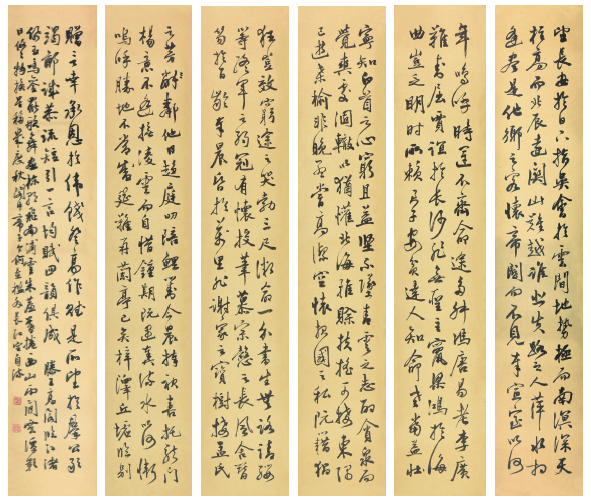 望長安於日下指吳會於雲間地勢極而南溟深天
柱高而北辰遠關山難越誰悲失路之人萍水相
逢盡是他鄉之客懷帝閽而不見奉宣室以何
年嗚呼時運不齊命途多舛馮唐易老李廣
難封屈賈誼於長沙非無聖主竄梁鴻於海
曲豈乏明時所賴君子安貧達人知命老當益壯
寧知白首之心窮且益堅不墜青雲之志酌貪泉而
覺爽處涸轍以猶懽北海雖賒扶搖可接東隅
已逝桑榆非晚孟嘗高潔空懷報國之私阮籍猖
狂豈效窮途之哭勃三尺微命一介書生無路請纓
等終軍之弱冠有懷投筆慕宗愨之長風舍簪
笏於百齡奉晨昏於萬里非謝家之寶樹接孟氏
之芳鄰他日趨庭叨陪鯉對今晨捧袂喜托龍門
楊意不逢撫凌雲而自惜鍾期既遇奏流水以何慚
嗚呼勝地不常盛筵難再蘭亭已矣梓澤丘墟臨別
贈言幸承恩於偉餞登高作賦是所望於群公敢
竭鄙誠恭疏短引一言均賦四韻俱成 滕王高閣臨江渚
佩玉鳴鸞罷歌舞畫棟朝飛南浦雲朱簾暮捲西山雨閑雲潭影
日悠悠物換星移幾度秋閣中帝子今何在檻外長江空自流